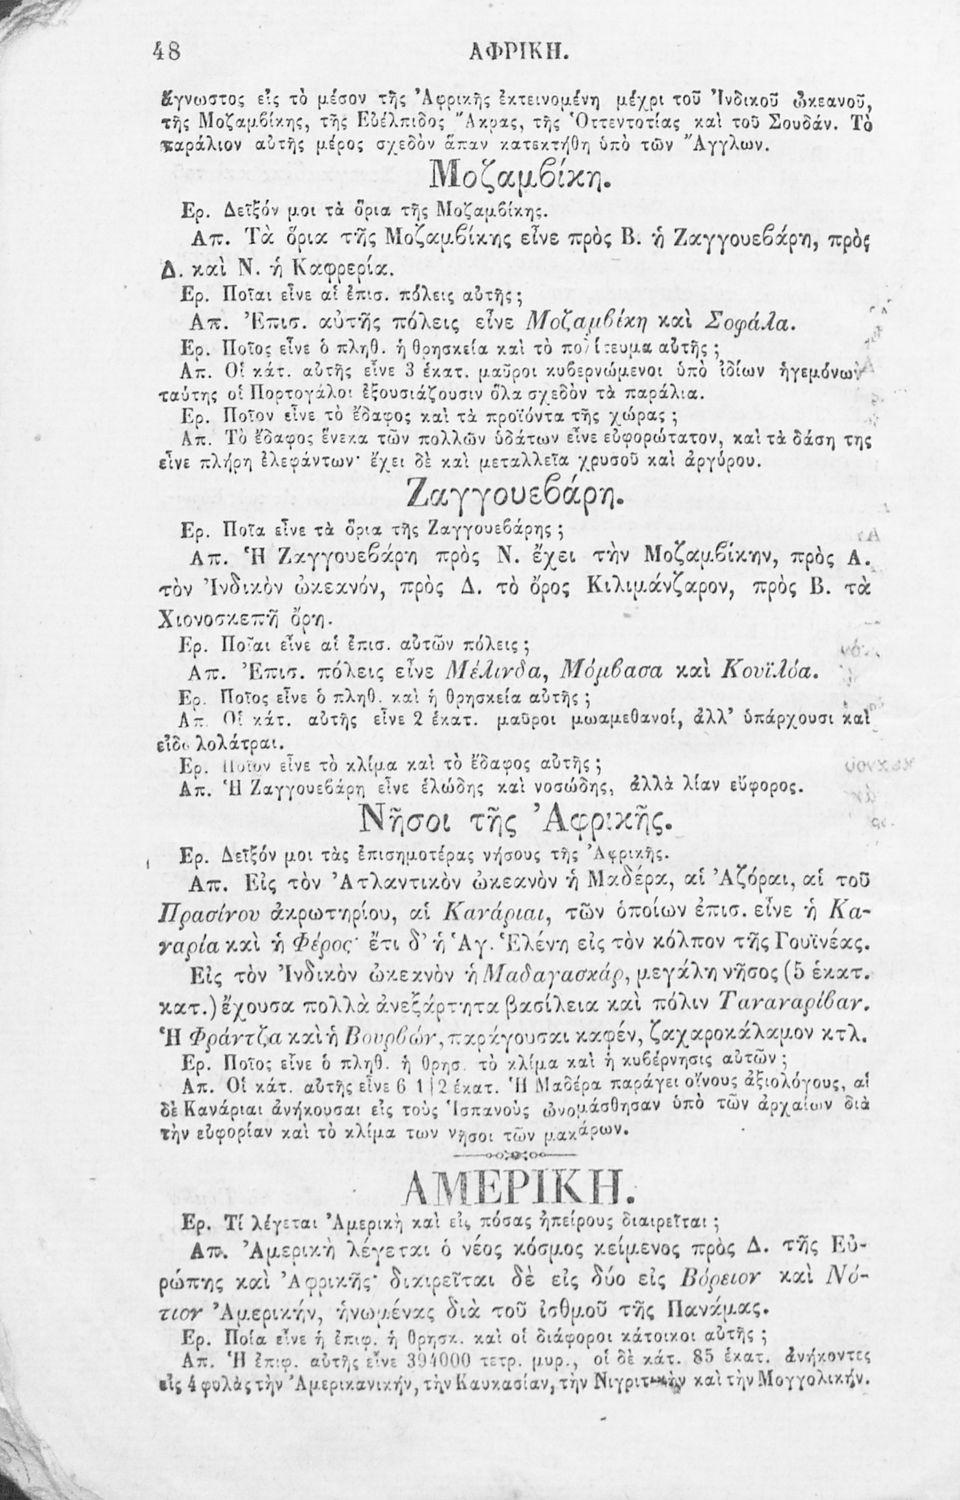 48 ΑΦΡΙΚΗ.
ἄγνωστος εἰς τὸ μέσον τῆς Ἀφρικῆς ἐκτεινομένη μέχρι τοῦ Ἰνδικοῦ ὠκεανοῦ,
τῆς Μοζαμβίκης, τῆς Εὐέλπιδος Ἄκρας, τῆς Ὁττεντοτίας καὶ τοῦ Σουδάν. Τὸ
παράλιον αὐτῆς μέρος σχεδὸν ἅπαν κατεκτήθη ὑπὸ τῶν Ἄγγλων.
Μοζαμβίκη.
Ερ. Δεῖξόν μοι τὰ ὅρια τῆς Μοζαμβίκης.
Απ. Τὰ ὅρια τῆς Μοζαμβίκης εἶνε πρὸς Β. ἡ Ζαγγουεβάρη, πρὸς
Δ. καὶ Ν. ἡ Καφρερία.
Ερ. Ποῖαι εἶνε αἱ ἐπισ. πόλεις αὐτῆς;
Απ. Ἐπισ. αὐτῆς πόλεις εἶνε Μοζαμβίκη καὶ Σοφάλα.
Ερ. Ποῖος εἶνε ὁ πληθ. ἡ θρησκεία καὶ τὸ πολίτευμα αὐτῆς;
Απ. Οἱ κάτ. αὐτῆς εἶνε 3 ἑκατ. μαῦροι κυβερνώμενοι ὑπὸ ἰδίων ἡγεμόνων
ταύτης οἱ Πορτογάλοι ἐξουσιάζουσιν ὅλα σχεδὸν τὰ παράλια.
Ερ. Ποῖον εἶνε τὸ ἔδαφος καὶ τὰ προϊόντα τῆς χώρας;
Απ. Τὸ ἔδαφος ἕνεκα τῶν πολλῶν ὑδάτων εἶνε εὐφορώτατον, καὶ τὰ δάση της
εἶνε πλήρη ἐλεφάντων· ἔχει δὲ καὶ μεταλλεῖα χρυσοῦ καὶ ἀργύρου.
Ζαγγουεβάρη.
Ερ. Ποῖα εἶνε τὰ ὅρια τῆς Ζαγγουεβάρης;
Απ. Ἡ Ζαγγουεβάρη πρὸς Ν. ἔχει τὴν Μοζαμβίκην, πρὸς Α.
τὸν Ἰνδικὸν ὠκεανόν, πρὸς Δ. τὸ ὄρος Κιλιμάνζαρον, πρὸς Β. τὰ
Χιονοσκεπῆ ὄρη.
Ερ. Ποῖαι εἶνε αἱ ἐπισ. αὐτῶν πόλεις;
Απ. Ἐπισ. πόλεις εἶνε Μέλινδα, Μόμβασα καὶ Κουϊλόα.
Ερ. Ποῖος εἶνε ὁ πληθ. καὶ ἡ θρησκεία αὐτῆς;
Απ. Οἱ κάτ. αὐτῆς εἶνε 2 ἑκατ. μαῦροι μωαμεθανοί, ἀλλ' ὑπάρχουσι καὶ
εἰδωλολάτραι.
Ερ. Ποῖον εἶνε τὸ κλίμα καὶ τὸ ἔδαφος αὐτῆς;
Απ. Ἡ Ζαγγουεβάρη εἶνε ἑλώδης καὶ νοσώδης, ἀλλὰ λίαν εὔφορος.
Νῆσοι τῆς Ἀφρικῆς.
Ερ. Δεῖξόν μοι τὰς ἐπισημοτέρας νήσους τῆς Ἀφρικῆς.
Απ. Εἰς τὸν Ἀτλαντικὸν ὠκεανὸν ἡ Μαδέρα, αἱ Ἀζόραι, αἱ τοῦ
Πρασίνου ἀκρωτηρίου, αἱ Κανάριαι, τῶν ὁποίων ἐπισ. εἶνε ἡ Κα-
ναρία καὶ ἡ Φέρος· ἔτι δ' ἡ Ἁγ. Ἑλένη εἰς τὸν κόλπον τῆς Γουϊνέας.
Εἰς τὸν Ἰνδικὸν ὠκεανὸν ἡ Μαδαγασκάρ, μεγάλη νῆσος (5 ἑκατ.
κατ.) ἔχουσα πολλὰ ἀνεξάρτητα βασίλεια καὶ πόλιν Ταναναρίβαν.
Ἡ Φράντζα καὶ ἡ Βουρβών, παράγουσαι καφέν, ζαχαροκάλαμον κτλ.
Ερ. Ποῖος εἶνε ὁ πληθ. ἡ θρησ. τὸ κλίμα καὶ ἡ κυβέρνησις αὐτῶν;
Απ. Οἱ κάτ. αὐτῆς εἶνε 6 1|2 ἑκατ. Ἡ Μαδέρα παράγει οἴνους ἀξιολόγους, αἱ
δὲ Κανάριαι ἀνήκουσαι εἰς τοὺς Ἱσπανοὺς ὠνομάσθησαν ὑπὸ τῶν ἀρχαίων διὰ
τὴν εὐφορίαν καὶ τὸ κλίμα των νῆσοι τῶν μακάρων.
ΑΜΕΡΙΚΗ.
Ερ. Τί λέγεται Ἀμερικὴ καὶ εἰς πόσας ἠπείρους διαιρεῖται;
Απ. Ἀμερικὴ λέγεται ὁ νέος κόσμος κείμενος πρὸς Δ. τῆς Εὐ-
ρώπης καὶ Ἀφρικῆς· διαιρεῖται δὲ εἰς δύο εἰς Βόρειον καὶ Νό-
τιον Ἀμερικήν, ἡνωμένας διὰ τοῦ ἰσθμοῦ τῆς Πανάμας.
Ερ. Ποία εἶνε ἡ ἐπιφ. ἡ θρησκ. καὶ οἱ διάφοροι κάτοικοι αὐτῆς;
Απ. Ἡ ἐπιφ. αὐτῆς εἶνε 394000 τετρ. μυρ., οἱ δὲ κάτ. 85 ἑκατ. ἀνήκοντες
εἰς 4 φυλὰς τὴν Ἀμερικανικήν, τὴν Καυκασίαν, τὴν Νιγριτικὴν καὶ τὴν Μογγολικήν.